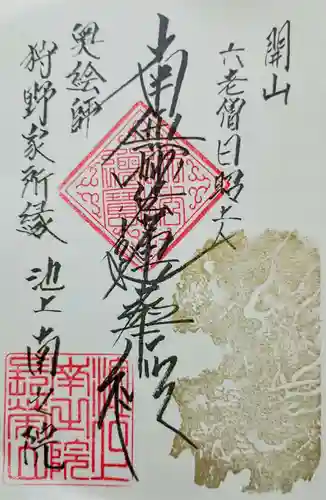 開山
六老僧日昭上人
南無妙法蓮華経
奥絵師
狩野家所縁
池上 南之院